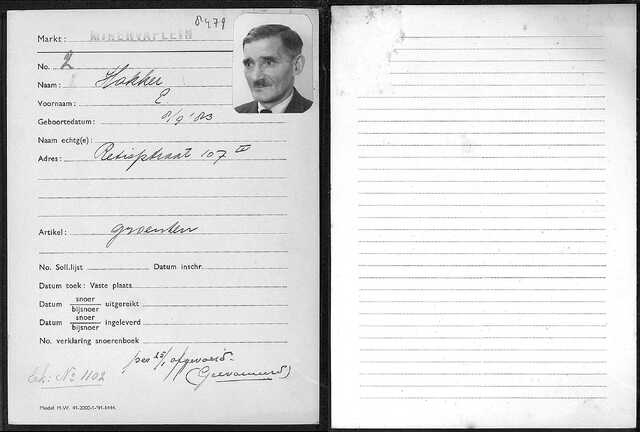 8479
Markt: MINERVAPLEIN
No. 2
Naam: Hakker
Voornaam: E
Geboortedatum: 9/9 '83
Naam echtg(e):
Adres: Retiefstraat 107 IV
Artikel: groenten
No. Soll.lijst Datum inschr.
Datum toek: Vaste plaats
Datum snoer/bijsnoer uitgereikt
Datum snoer/bijsnoer ingeleverd
No. verklaring snoerenboek
per 15/1 afgevoerd.
(Geevacueerd)
Erk: No 1102